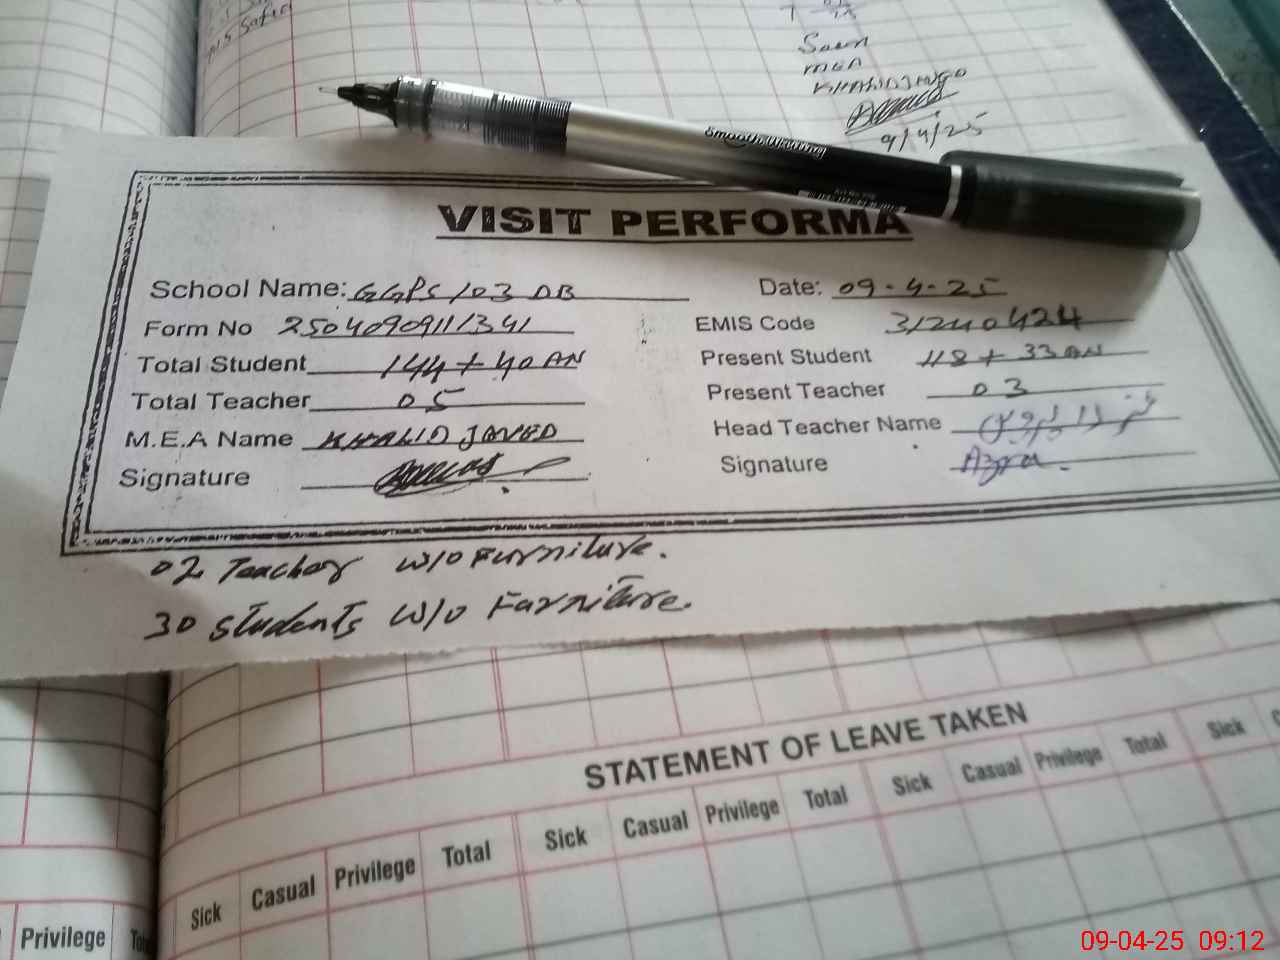 Seen
MEA
KHALID JAVED
9/4/25
Smooth Writing
VISIT PERFORMA
School Name: GGPS 103 DB Date: 09-4-25
Form No 2504090911341 EMIS Code 31240424
Total Student 144 + 40 AN Present Student 118 + 33 AN
Total Teacher 05 Present Teacher 03
M.E.A Name KHALID JAVED Head Teacher Name
Signature Signature Azra.
02 Teacher W/O Furniture.
30 Students W/O Furniture.
STATEMENT OF LEAVE TAKEN
Sick Casual Privilege Total Sick Casual Privilege Total Sick Casual Privilege Total Sick
Privilege
09-04-25 09:12